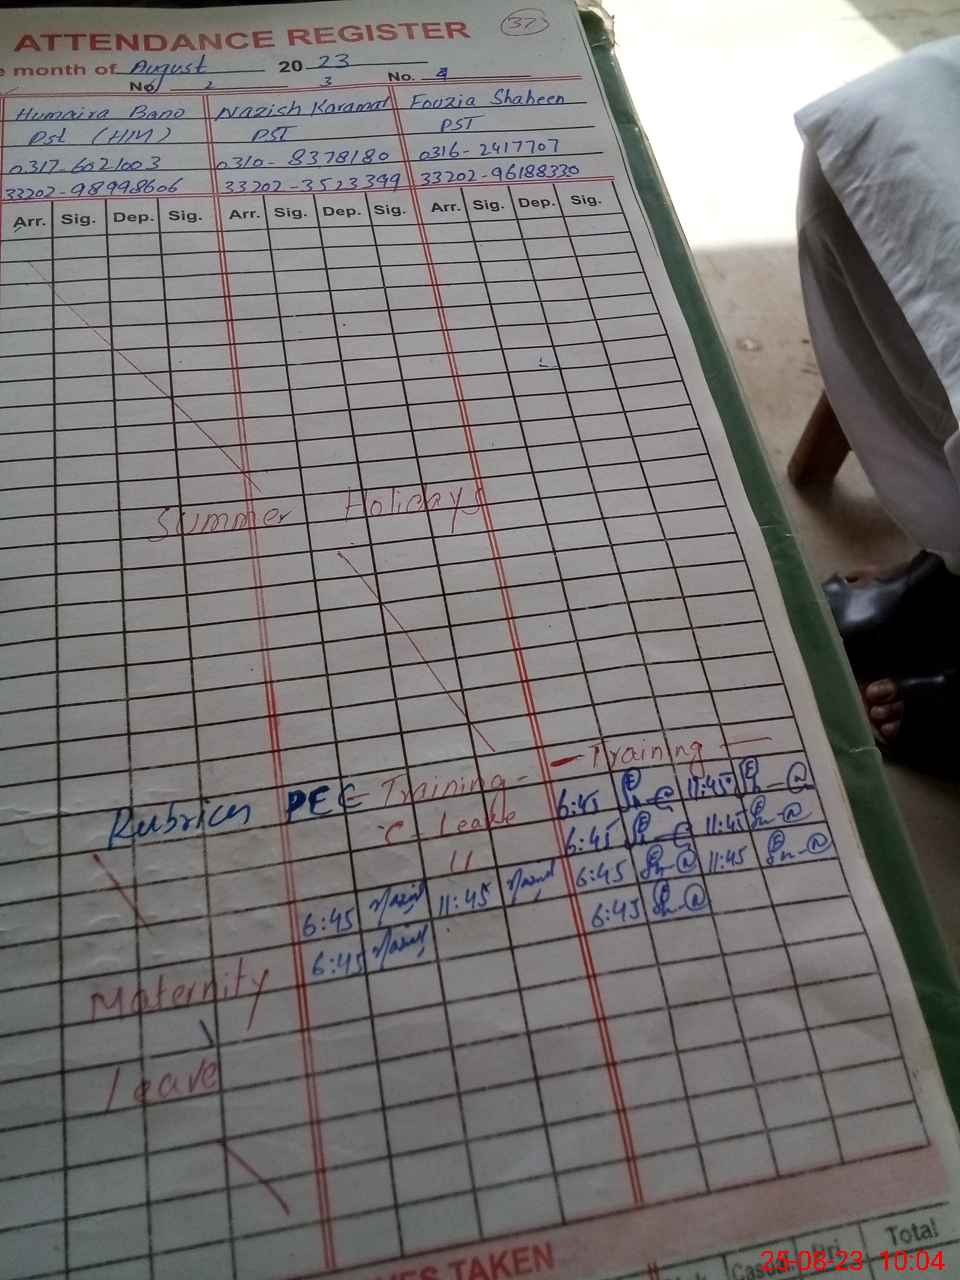 37
ATTENDANCE REGISTER
e month of August 2023
No. 2 3 No. 4
Humaira Bano Nazish Karamat Fouzia Shaheen
Pst (HM) PST PST
0317-6021003 0310-8378180 0316-2417707
33202-98998606 33202-3523399 33202-96188330
Arr. Sig. Dep. Sig. Arr. Sig. Dep. Sig. Arr. Sig. Dep. Sig.
Summer Holidays
- Training -
Rubrics PEC Training - 6:45 11:45
C - Leave 6:45 11:45
11 6:45 11:45
6:45 Nazish 11:45 Nazish 6:45
6:45 Nazish
Maternity
Leave
VES TAKEN
Casual Total
25-08-23 10:04